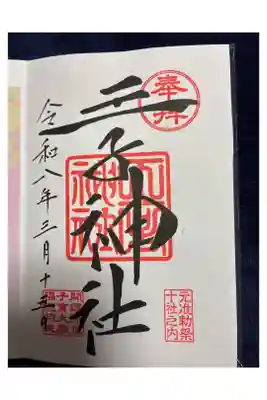 奉拝
王子神社
元准勅祭
十社之内
令和八年三月十五日